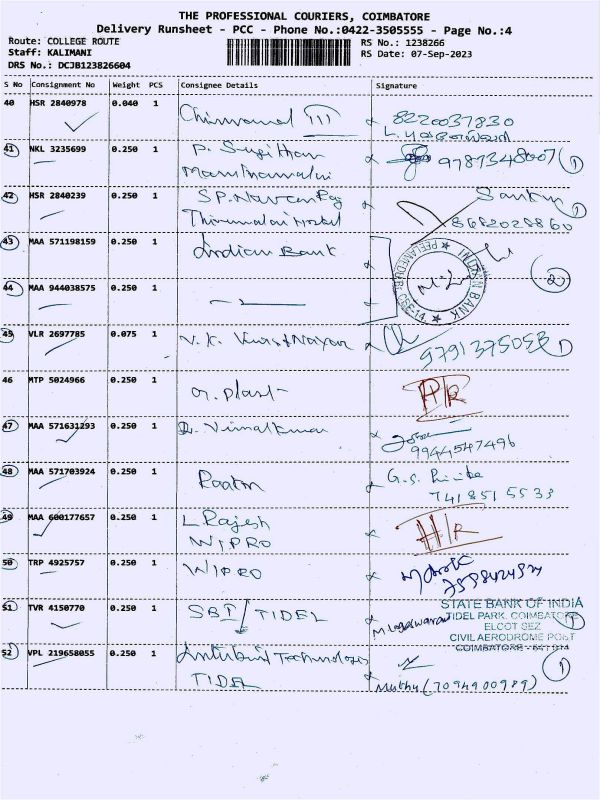 THE PROFESSIONAL COURIERS, COIMBATORE
Delivery Runsheet - PCC - Phone No.:0422-3505555 - Page No.:4
Route: COLLEGE ROUTE RS No.: 1238266
Staff: KALIMANI RS Date: 07-Sep-2023
DRS No.: DCJB123826604
S No Consignment No Weight PCS Consignee Details Signature
40 HSR 2840978 0.040 1 8220037830
41 NKL 3235699 0.250 1 P. 9787348007 1
42 HSR 2840239 0.250 1 S.P. 1
Thirumalai Hostel 8682028860
43 MAA 571198159 0.250 1 Indian Bank
INDIAN BANK
PEELAMEDU, CBE-14
2
44 MAA 944038575 0.250 1
45 VLR 2697785 0.075 1 V.K. 1
46 MTP 5024966 0.250 1
47 MAA 571631293 0.250 1 Dr. Vimal Kumar
9944547496
48 MAA 571703924 0.250 1 G.S.
741851 5533
49 MAA 600177657 0.250 1 L Rajesh H/R
WIPRO
50 TRP 4925757 0.250 1 WIPRO
51 TVR 4150770 0.250 1 SBI / TIDEL
STATE BANK OF INDIA
TIDEL PARK, COIMBATORE
ELCOT SEZ
CIVIL AERODROME POST
COIMBATORE - 641 014
1
52 VPL 219658055 0.250 1 Technologies
TIDEL Muthu (7094900989) 1